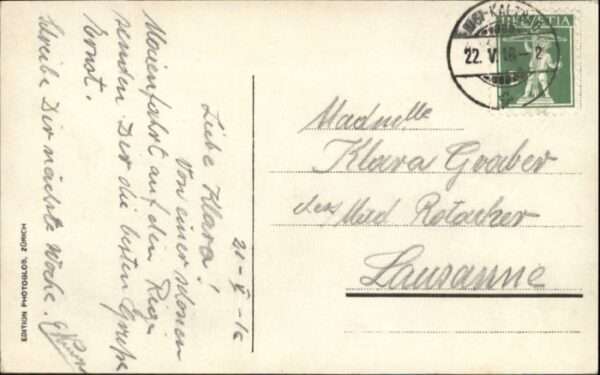 21-V-16
Liebe Klara!
Von einer schönen
Maienfahrt auf den Rigi
senden Dir die besten Grüße
Ernst.
Schreibe Dir nächste Woche.
EDITION PHOTOGLOB, ZÜRICH
RIGI-KALTBAD
22. V. 16 – 2
HELVETIA
Madmelle
Klara Graber
chez Mad
Lausanne